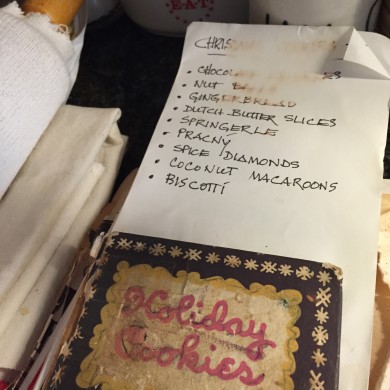 E·A·T
CHRIS
• CHOCO
• NUT
• GINGERBREAD
• DUTCH BUTTER SLICES
• SPRINGERLE
• PRACNÝ
• SPICE DIAMONDS
• COCONUT MACAROONS
• BISCOTTI
Holiday
Cookies